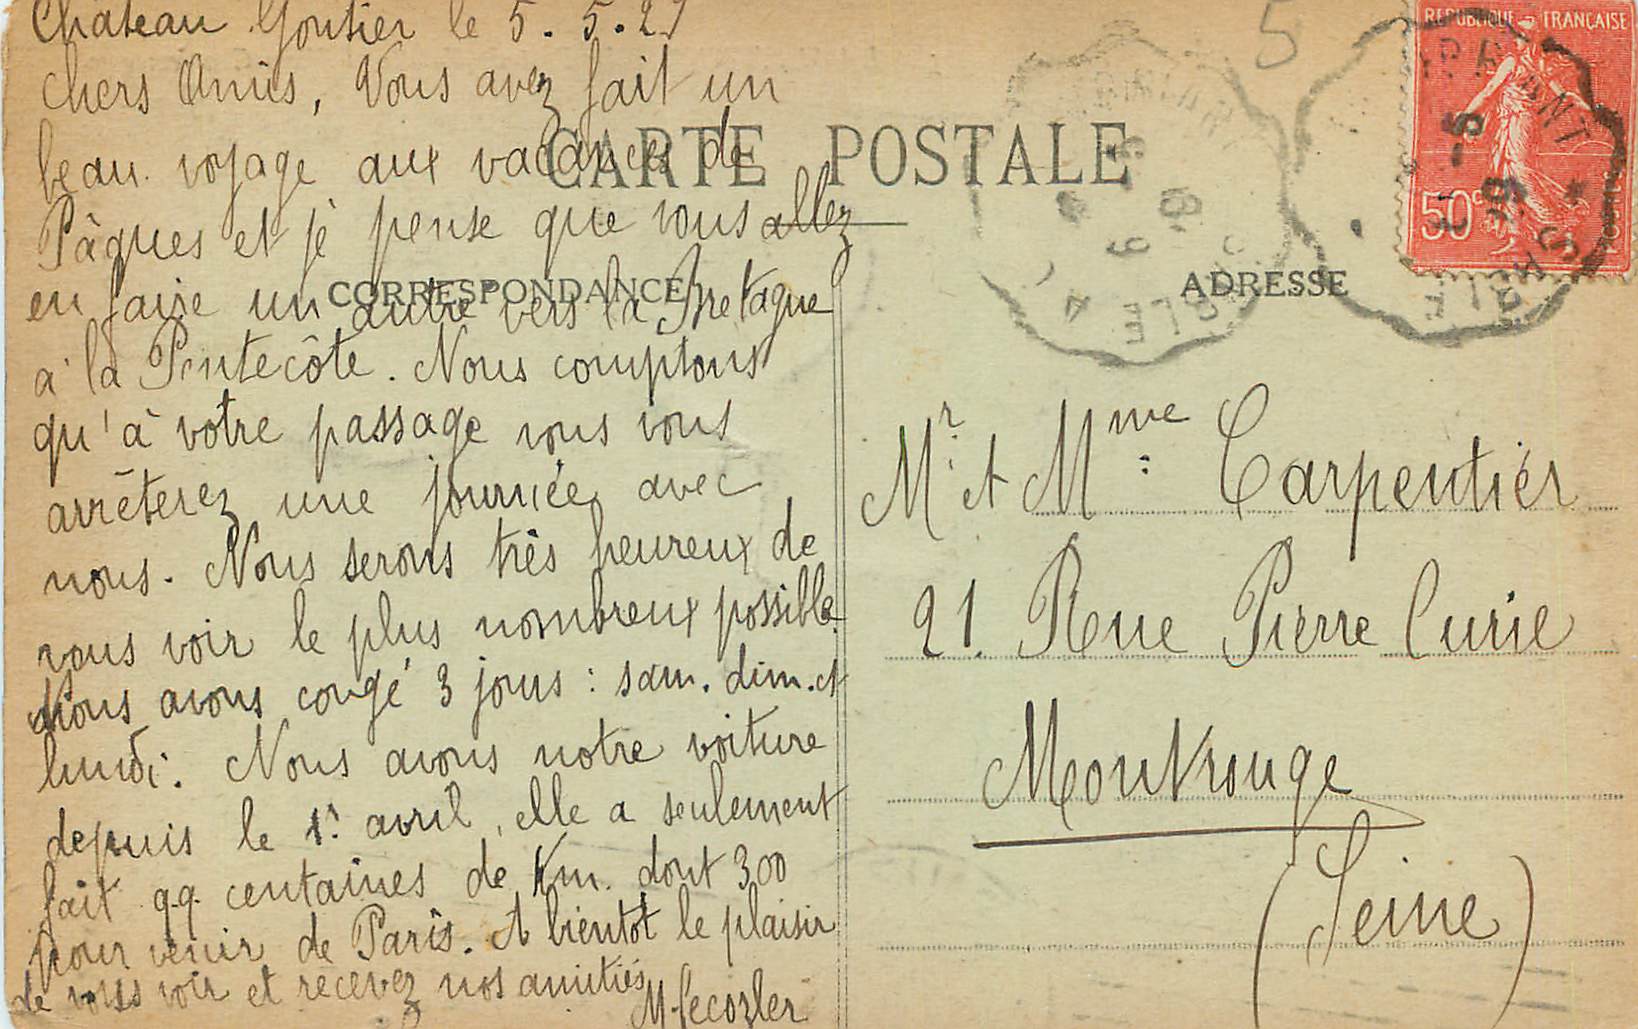 Château Gontier le 5.5.29
chers Amis, Vous avez fait un
beau voyage aux vacances de
Pâques et je pense que vous allez
en faire un autre vers la Bretagne
à la Pentecôte. Nous comptons
qu'à votre passage vous vous
arrêterez une journée avec
nous. Nous serons très heureux de
vous voir le plus nombreux possible.
Nous avons congé 3 jours : sam. dim. et
lundi. Nous avons notre voiture
depuis le 1r avril, elle a seulement
fait qq centaines de Km. dont 300
pour venir de Paris. A bientôt le plaisir
de vous voir et recevez nos amitiés
CARTE POSTALE
CORRESPONDANCE
ADRESSE
5
REPUBLIQUE FRANÇAISE
50c
POSTES
Mr. et Mme : Carpentier
21. Rue Pierre Curie
Montrouge
(Seine)